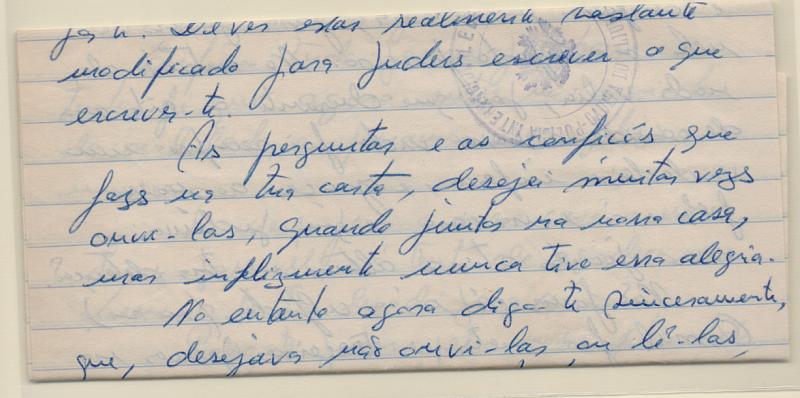 Deves estar realmente bastante
modificado para puders escrever o que
escreves-te.
As perguntas e as confições que
fazs na tua carta, desejei muitas vezes
ouvi-las, quando juntos na nossa casa,
mas infelizmente nunca tive essa alegria.
No entanto agora digo-te sinceramente,
que, desejava não ouvi-las ou lê-las,